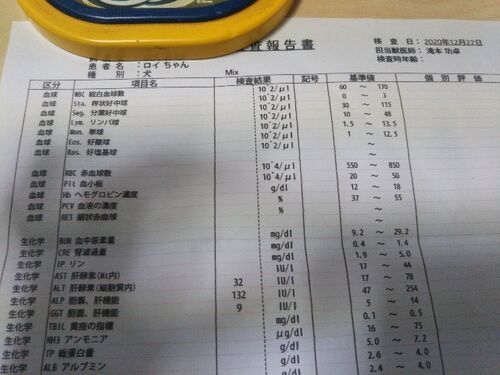 査報告書
検 査 日： 2020年12月22日
担当獣医師： 滝本 功卓
患者名：ロイちゃん
検査時年齢：
種 別：犬 Mix
区分 項目名 検査結果 記号 基準値 個別評価
血球 WBC 総白血球数 10^2/μl 60 ～ 170
血球 Sta. 桿状好中球 10^2/μl 0 ～ 3
血球 Seg. 分葉好中球 10^2/μl 30 ～ 115
血球 Lym. リンパ球 10^2/μl 10 ～ 48
血球 Mon. 単球 10^2/μl 1.5 ～ 13.5
血球 Eos. 好酸球 10^2/μl 1 ～ 12.5
血球 Bas. 好塩基球 10^2/μl ～
～
血球 RBC 赤血球数 10^4/μl 550 ～ 850
血球 Plt 血小板 10^4/μl 20 ～ 50
血球 Hb ヘモグロビン濃度 g/dl 12 ～ 18
血球 PCV 血液の濃度 % 37 ～ 55
血球 RET 網状赤血球 % ～
～
生化学 BUN 血中尿素量 mg/dl 9.2 ～ 29.2
生化学 CRE 腎濾過量 mg/dl 0.4 ～ 1.4
生化学 IP リン mg/dl 1.9 ～ 5.0
生化学 AST 肝酵素(Mt内) IU/l 17 ～ 44
生化学 ALT 肝酵素(細胞質内) 32 IU/l 17 ～ 78
生化学 ALP 胆嚢、肝機能 132 IU/l 47 ～ 254
生化学 GGT 胆嚢、肝機能 9 IU/l 5 ～ 14
生化学 TBIL 黄疸の指標 mg/dl 0.1 ～ 0.5
生化学 NH3 アンモニア μg/dl 16 ～ 75
生化学 TP 総蛋白量 g/dl 5.0 ～ 7.2
生化学 ALB アルブミン g/dl 2.6 ～ 4.0
2.4 ～ 4.0